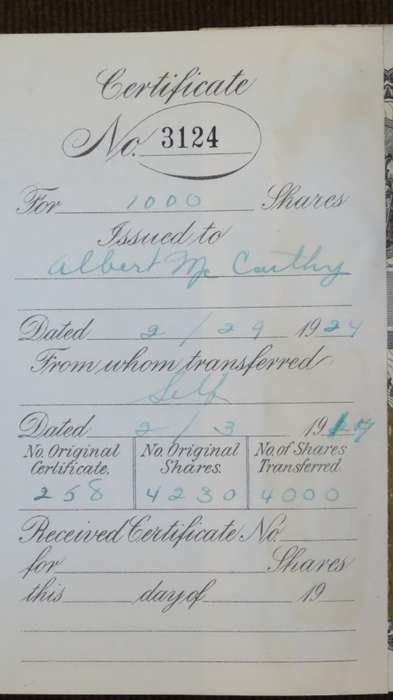 Certificate
No. 3124
For 1000 Shares
Issued to
Albert Mc Carthy
Dated 2/29 1924
From whom transferred
Self
Dated 2/3 19
No. Original Certificate. No. Original Shares. No. of Shares Transferred
258 4230 4000
Received Certificate No.
for Shares
this day of 19